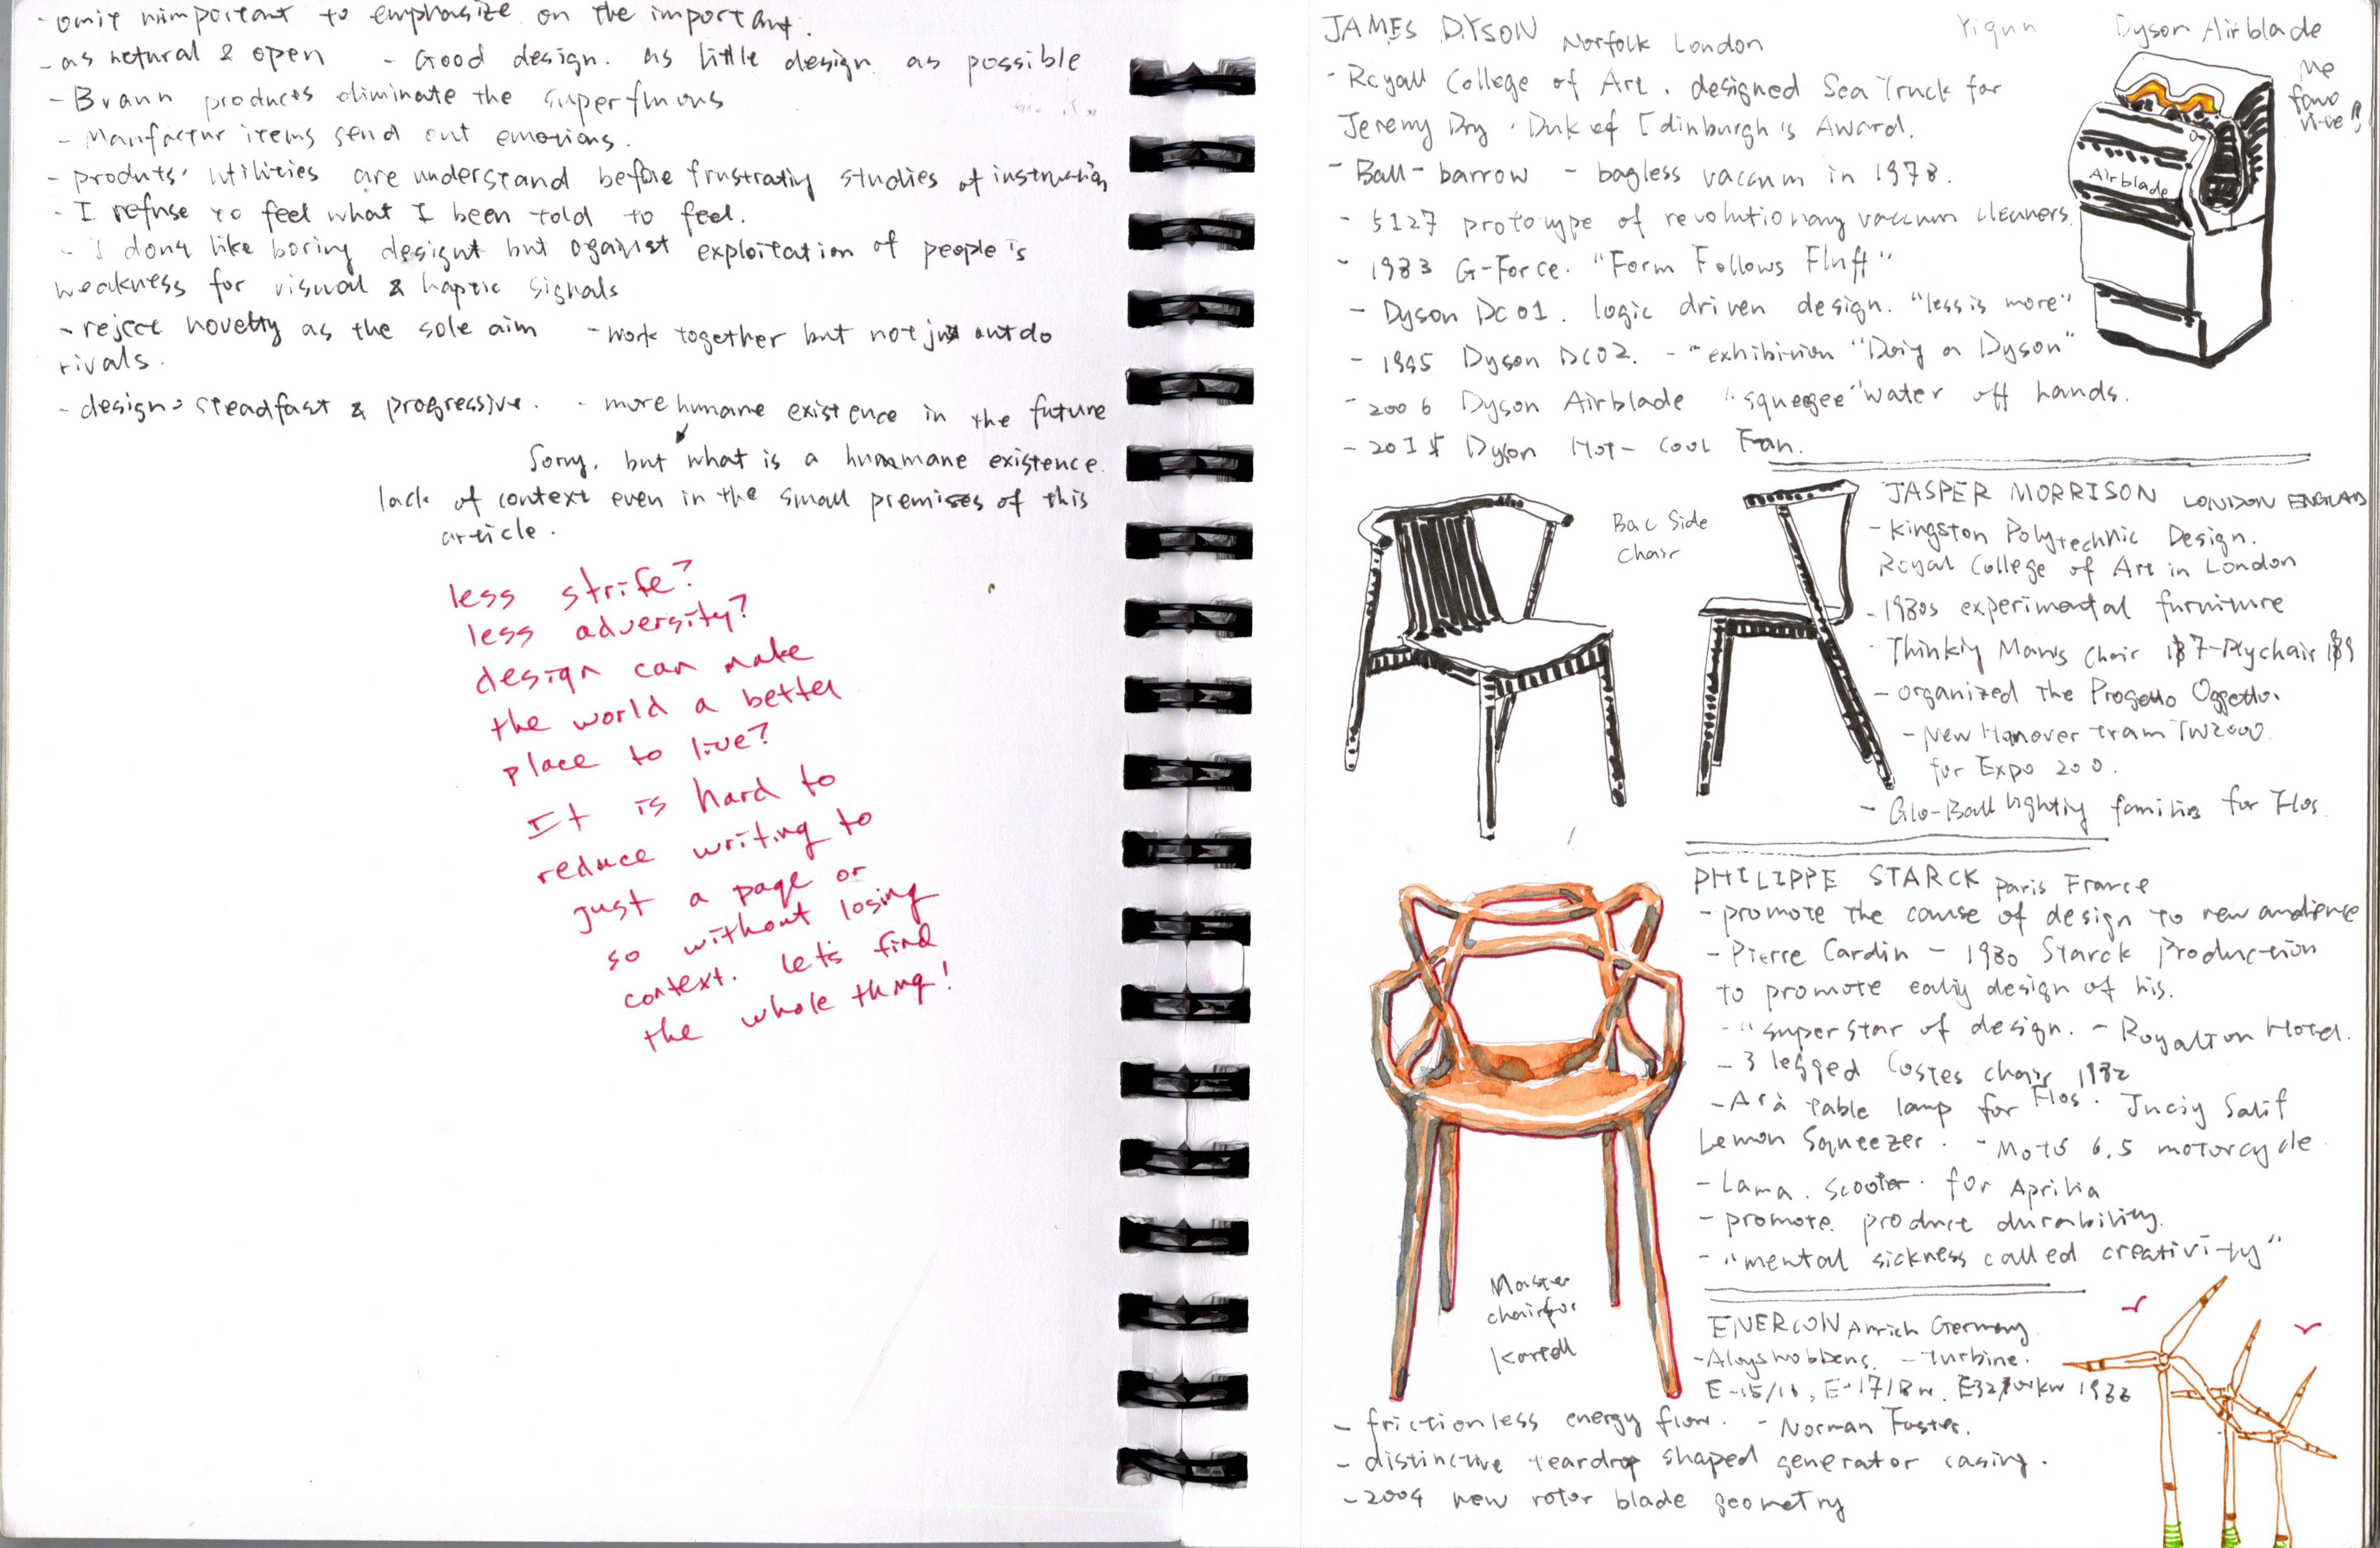 - omit nimportant to emphasize on the important.
- as netural & open - Good design. as little design as possible
- Braun produces eliminate the superfluous
- Manfactur items send out emotions.
- produts' utilities are understand before frustratiy studies of instruction
- I refuse to feel what I been told to feel.
- I dont like boring design but against exploitation of people's
weakness for visual & haptic signals
- reject novelty as the sole aim - work together but not just outdo
rivals.
- design> steadfast & progressive. - more humane existence in the future
Sorry, but what is a hummane existence.
lack of context even in the small premises of this
article.
less strife?
less adversity?
design can make
the world a better
place to live?
It is hard to
reduce writing to
just a page or
so without losing
context. Let's find
the whole thing!
JAMES DYSON Norfolk London
Yiqun
Dyson Airblade
me
favo
rite!!
- Royall College of Art. designed Sea Truck for
Jeremy Dry. Duk of Edinburgh's Award.
- Ball-barrow - bagless vaccum in 1978.
- 5127 prototype of revolutionary vaccum cleaners.
- 1983 G-Force. "Form Follows Fluff"
- Dyson Dc01. logic driven design. "less is more"
- 1995 Dyson DC02. - exhibition "Doig a Dyson"
- 2006 Dyson Airblade "squeegee" water off hands.
- Dyson Hot-Cool Fan.
Airblade
Bac Side
chair
JASPER MORRISON LONDON ENGLAD
- Kingston Polytechnic Design.
Royal College of Art in London
- 1980s experimental furniture
- Thinkiy Man's Chair - Plychair
- organized the Progetto Oggetto.
- New Hanover tram TW2000.
for Expo 200.
- Glo-Ball lightiy families for Flos.
PHILIPPE STARCK Paris France
- promote the cause of design to new audience
- Pierre Cardin - 1980 Starck Production
to promote ealiy design of his.
- "superstar of design. - Royalton Hotel.
- 3 legged Costes chair 1982
- Arà table lamp for Flos. Juciy Salif
Lemon Squeezer. - Moto 6.5 motorcycle.
- Lama. scooter. for Aprilia
- promote product durability.
- "mental sickness called creativity"
Master
chair for
Kartell
ENERCON Aurich Germany
- Aloys Wobbens. - turbine.
E-15/16, E-17/18
- frictionless energy flow. - Norman Foster.
- distinctive teardrop shaped generator casing.
- 2004 new rotor blade geometry